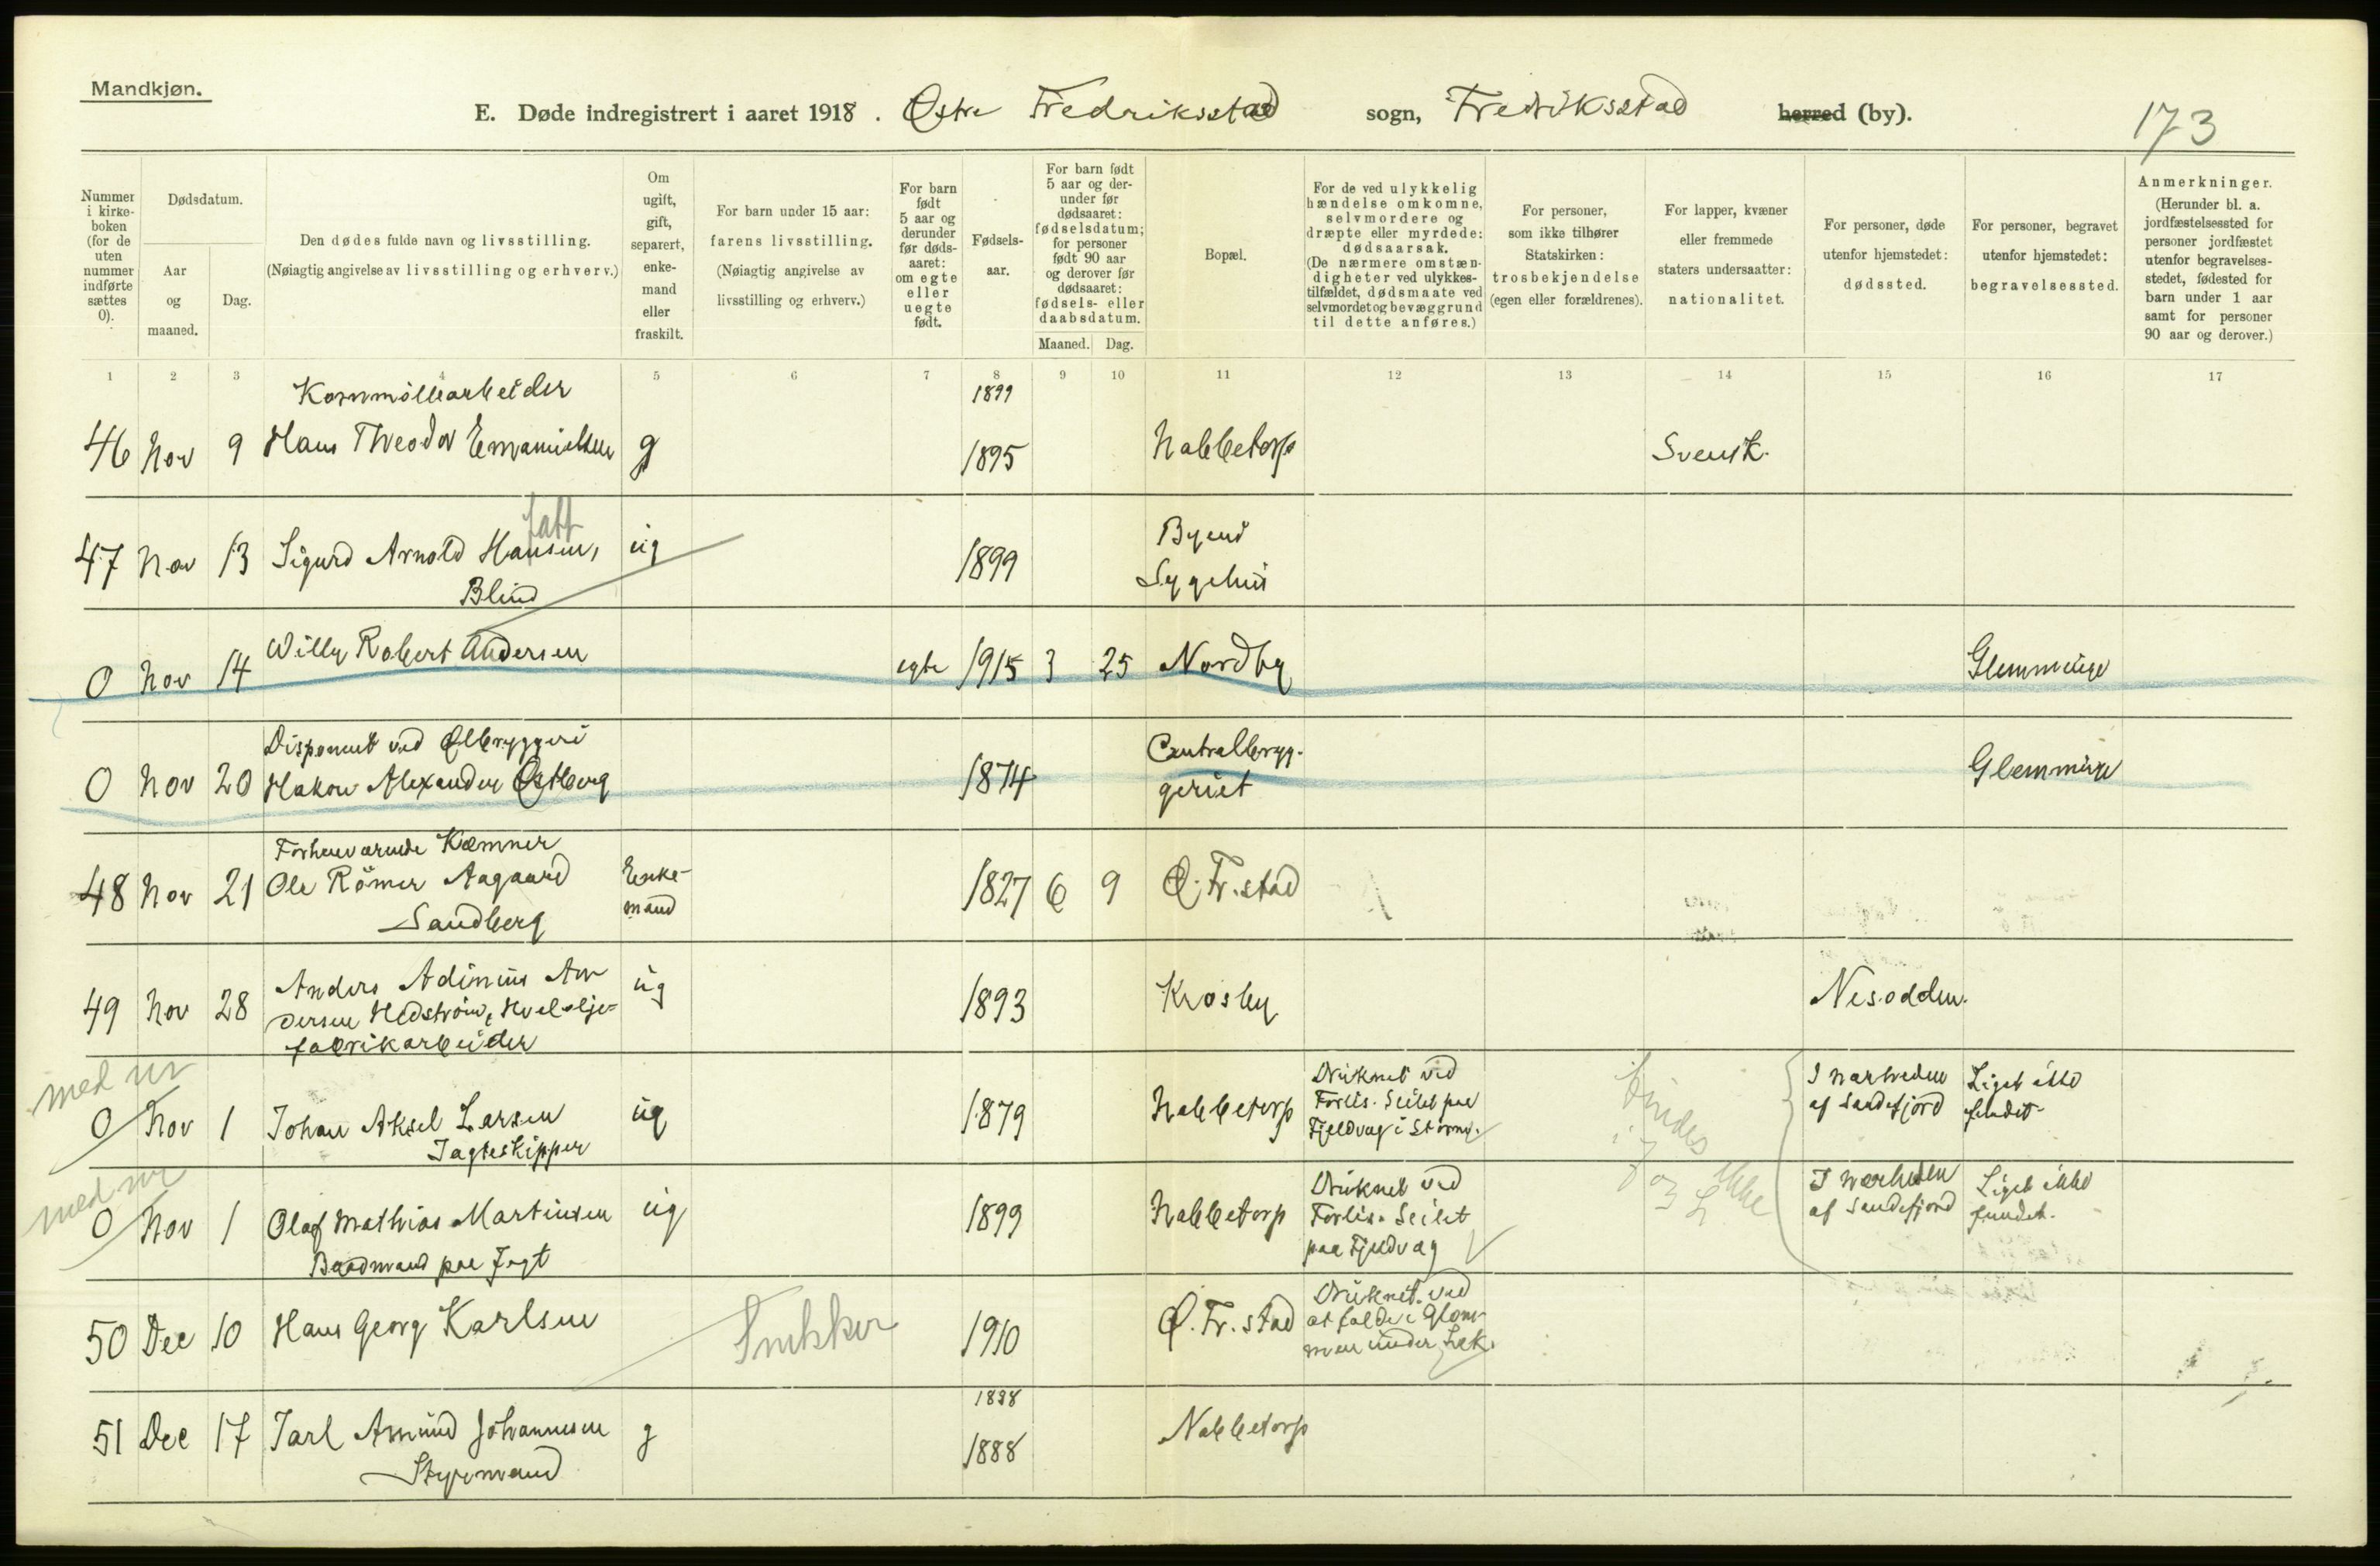 Mandkjøn.
E. Døde indregistrert i aaret 1918. Østre Fredriksstad sogn, Fredriksstad herred (by).
173
Nummer i kirkeboken (for de uten nummer indførte sættes 0).
Dødsdatum.
Aar og maaned.
Dag.
Den dødes fulde navn og livsstilling.
(Nøiagtig angivelse av livsstilling og erhverv.)
Om ugift, gift, separert, enkemand eller fraskilt.
For barn under 15 aar: farens livsstilling.
(Nøiagtig angivelse av livsstilling og erhverv.)
For barn født 5 aar og derunder før dødsaaret: om egte eller uegte født.
Fødselsaar.
For barn født 5 aar og derunder før dødsaaret: fødselsdatum; for personer født 90 aar og derover før dødsaaret: fødsels- eller daabsdatum.
Maaned. Dag.
Bopæl.
For de ved ulykkelig hændelse omkomne, selvmordere og dræpte eller myrdede: dødsaarsak.
(De nærmere omstændigheter ved ulykkestilfældet, dødsmaate ved selvmordet og bevæggrund til dette anføres.)
For personer, som ikke tilhører Statskirken: trosbekjendelse (egen eller forældrenes).
For lapper, kvæner eller fremmede staters undersaatter: nationalitet.
For personer, døde utenfor hjemstedet: dødssted.
For personer, begravet utenfor hjemstedet: begravelsessted.
Anmerkninger.
(Herunder bl. a. jordfæstelsessted for personer jordfæstet utenfor begravelsesstedet, fødested for barn under 1 aar samt for personer 90 aar og derover.)
1 2 3 4 5 6 7 8 9 10 11 12 13 14 15 16 17
Kornmöllearbeider 1899
46 Nov 9 Hans Theodor Emanuelsen g 1895 Nabbetorp Svensk.
fatt
47 Nov 13 Sigurd Arnold Hansen, ug 1899 Byens Sygehus
Blind
0 Nov 14 Willy Robert Andersen egte 1915 3 25 Nordby Glemminge
Disponent ved Ølbryggeri
0 Nov 20 Hakon Alexander Østberg 1874 Centralbryggeriet Glemminge
Forhenværende Kæmner
48 Nov 21 Ole Römer Aagaard Enkemand 1827 6 9 Ø. Fr.stad
Sandberg
49 Nov 28 Anders Adinius Andersen Hedström, Hvaloljefabrikarbeider ug 1893 Krosby Nesodden.
med nr
0 Nov 1 Johan Aksel Larsen ug 1879 Nabbetorp Druknet ved Forlis. Seilet paa Fjeldvag i Storm. I nærheden af Sandefjord Liget ikke fundet
Jagteskipper
findes ikke i J og L
med nr
0 Nov 1 Olaf Mathias Martinsen ug 1899 Nabbetorp Druknet ved Forlis. Seilet paa Fjeldvag I nærheden af Sandefjord Liget ikke fundet.
Baadmand paa Jagt
50 Dec 10 Hans Georg Karlsen Snekker 1910 Ø. Fr. stad Druknet ved at falde i Glommen under Lek.
1898
51 Dec 17 Jarl Amund Johannesen g 1888 Nabbetorp
Styrmand